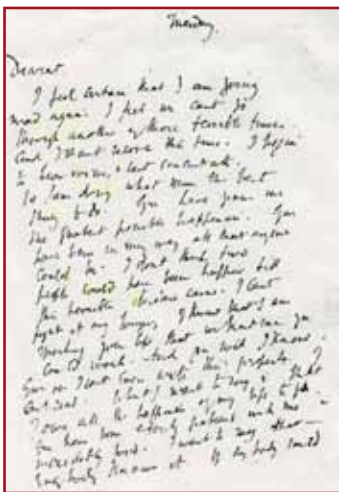 Tuesday.
Dearest,
I feel certain that I am going
mad again: I feel we cant go
through another of those terrible times.
And I shant recover this time. I begin
to hear voices, & cant concentrate.
So I am doing what seems the best
thing to do. You have given me
the greatest possible happiness. You
have been in every way all that anyone
could be. I dont think two
people could have been happier till
this terrible disease came. I cant
fight it any longer, I know that I am
spoiling your life, that without me you
could work. And you will I know.
You see I cant even write this properly. I
cant read. What I want to say is that
I owe all the happiness of my life to you.
You have been entirely patient with me &
incredibly good. I want to say that —
everybody knows it. If anybody could